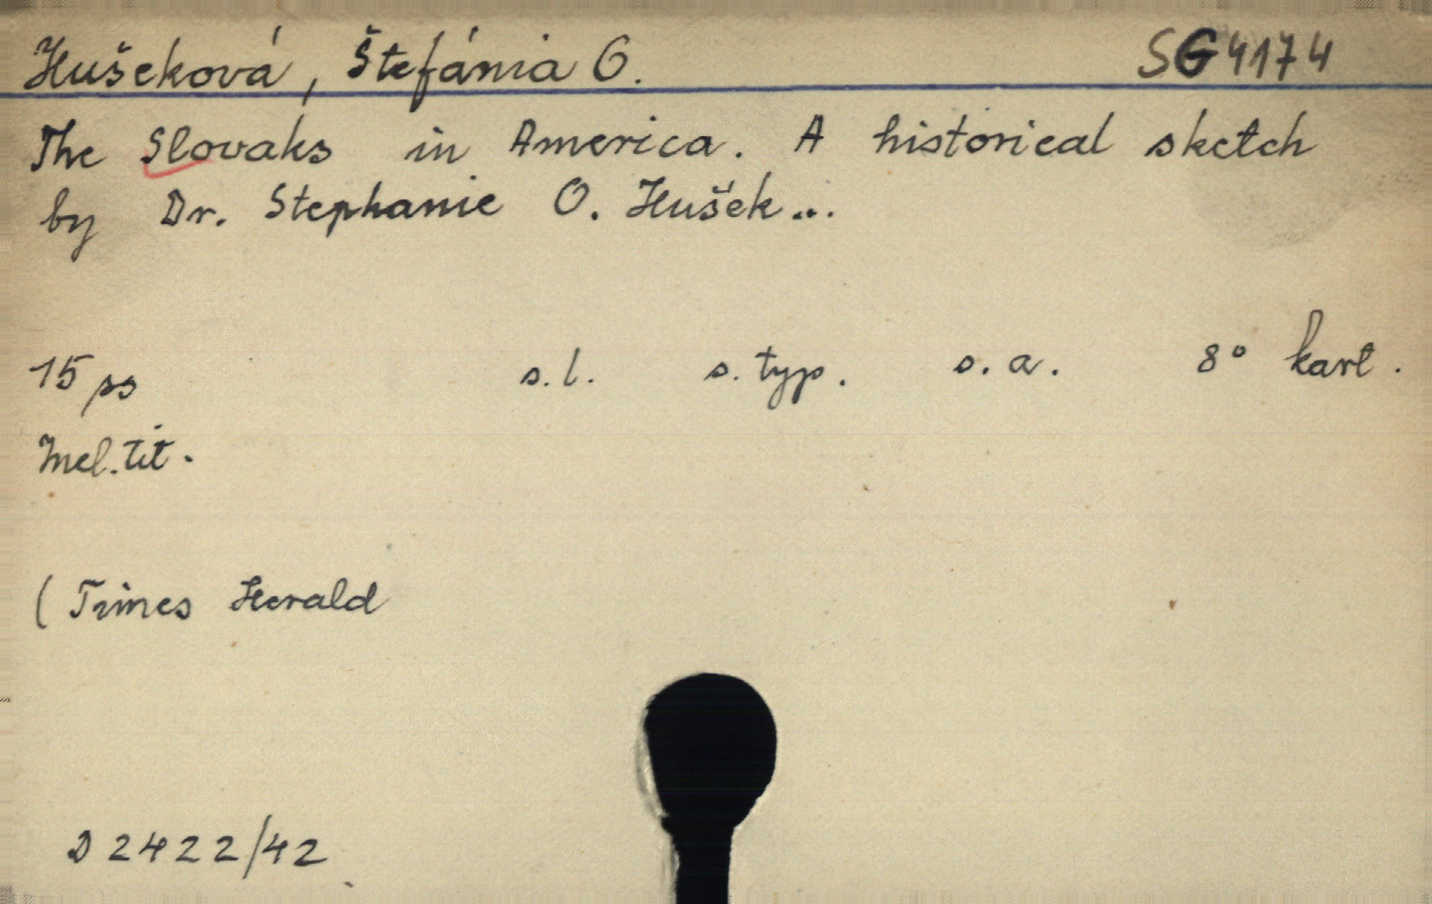 Hušeková, Štefánia O. SG4174
The Slovaks in America. A historical sketch
by Dr. Stephanie O. Hušek...
15 ps s. l. s. typ. s. a. 8° kart.
tit.
( Times Herald
D 2422/42